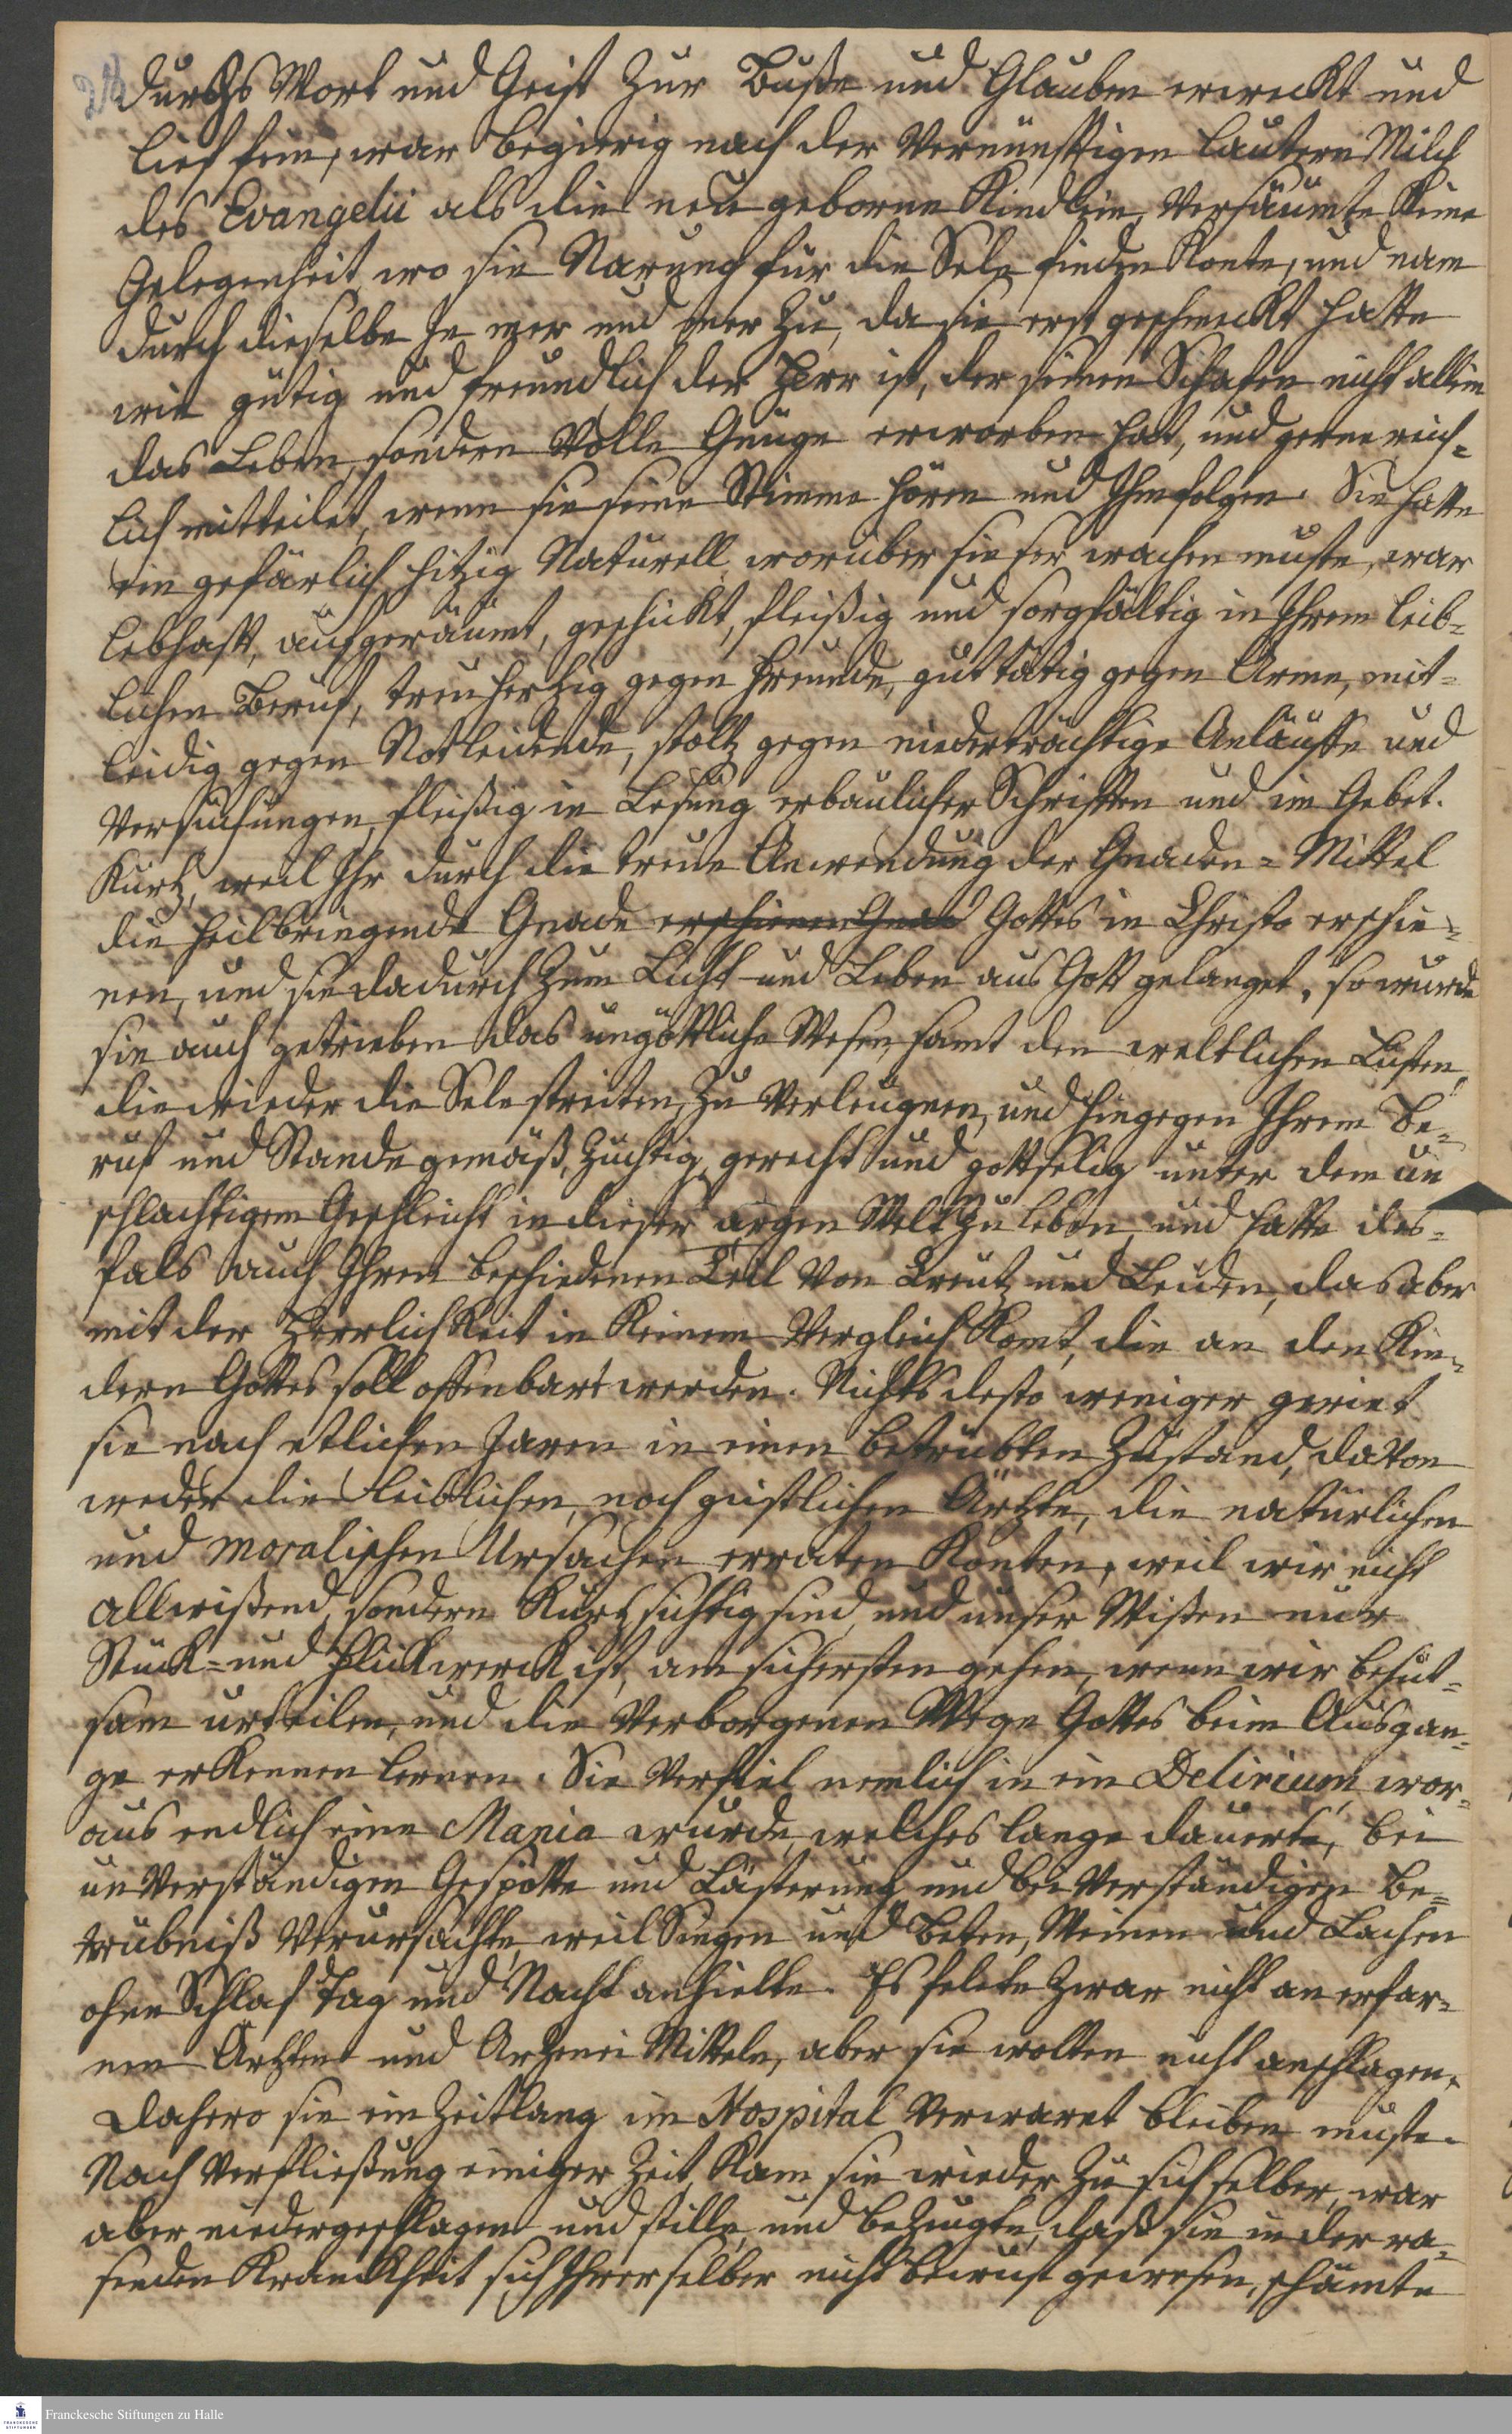 durchs Wort und Geist zur Buße und Glauben erweckt und
lief fein, war begierig nach der vernünfftigen lautern Milch
des Evangelii als die neu geborne Kindlein, versäumte keine
Gelegenheit, wo sie Narung für die Sele finden konte, und nam
durch dieselbe je mer und mer zu, da sie erst geschmeckt hatte
wie gütig und freundlich der Herr ist, der seinen Schafen nicht allein
das Leben, sondern volle Gnüge erworben hat, und gerne reich-
lich mitteilet, wenn sie seine Stimme hören und Ihm folgen. Sie hatte
ein gefärlich hitzig Naturell, worüber sie ser wachen muste, war
lebhafft, aufgeräumt, geschickt, fleißig und sorgfältig in Ihrem leib-
lichen Beruf, treuhertzig gegen Freunde, guttätig gegen Arme, mit-
leidig gegen Notleidende, stoltz gegen niederträchtige Anläuffe und
Versuchungen, fleißig in Lesung erbaulicher Schrifften und im Gebet.
Kurtz, weil Ihr durch die treue Anwendung der Gnaden-Mittel
die heilbringende Gnade erschienen Gnad Gottes in Christo erschie-
nen, und sie dadurch zum Licht und Leben aus Gott gelanget, so wurde
sie auch getrieben das ungöttliche Wesen, samt den weltlichen Lüsten,
die wieder die Sele streiten, zu verleugnen, und hingegen Ihrem Be-
ruf und Stande gemäß, züchtig, gerecht und gottselig unter dem un
schlachtigem Geschlecht in dieser argen Welt zu leben, und hatte des-
fals auch Ihren beschiedenen Teil von Creutz und Leiden, das aber
mit der Herrlichkeit in keinem Vergleich komt, die an den Kin-
dern Gottes soll offenbart werden. Nichts desto weniger geriet
sie nach etlichen Jaren in einen betrübten Zustand, davon
weder die leiblichen, noch geistlichen Ärtzte, die natürlichen
und moralischen Ursachen erraten konten, weil wir nicht
allwißend, sondern kurtzsichtig sind, und unser Wißen nur
Stück- und Flickwerck ist, am sichersten gehen, wenn wir behut-
sam urteilen, und die verborgenen Wege Gottes beim Ausgan-
ge erkennen lernen. Sie verfiel nemlich in ein Delirium, wor-
aus endlich eine Mania wurde, welches lange dauerte, bei
unverständigen Gespötte und Lästerung und bei verständigen Be-
trübniß verursachte, weil Singen und Beten, Weinen und Lachen
ohne Schlaf Tag und Nacht anhielte. Es felete zwar nicht an erfar-
nen Ärtzten und Artzenei Mitteln, aber sie wolten nicht anschlagen,
dahero sie ein Zeitlang im Hospital verwaret bleiben muste.
Nach Verfließung einiger Zeit, kam sie wieder zu sich selber, war
aber niedergeschlagen und stille, und bezeugte, daß sie in der ra-
senden Kranckheit sich Ihrer selber nicht bewust gewesen, schämte
Franckesche Stiftungen zu Halle